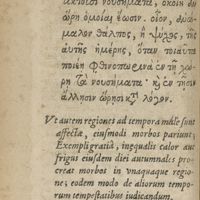 ώρη ὁμοίαι ἔωσιν. οἷον, ὁκό-
μαλον θάλπος, ἢ ψῦχος, τῆς
αὐτῆς ἡμέρης, ὅταν τοιαῦτα
ποιέῃ φθινοπωρινὰ ἐν τῇ χώ-
ρῃ τὰ νουσήματα. κἢν ἐν τῇσιν
ἄλλῃσιν ὥρῃσι κτ λόγον.
Vt autem regiones ad tempora malè sunt
affectæ, eiusmodi morbos pariunt:
Exempli gratia, inæqualis calor aut
frigus eiusdem diei autumnales pro-
creat morbos in vnaquaque regio-
ne: eodem modo de aliorum tempo-
rum tempestatibus iudicandum.